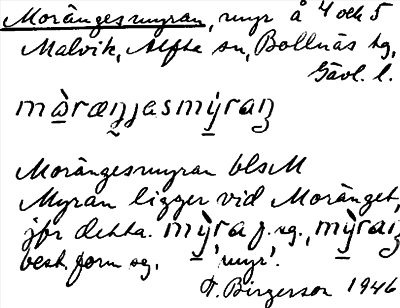 Morängesmyran, myr å 4 och 5
Malvik, Alfta sn, Bollnäs tg,
Gävl. l.
mὼ̲ræŋjasmỳ̲raŋ
Morängesmyran blsM
Myran ligger vid Moränget,
jfr detta. mỳ̲ra f. sg., mỳ̲raŋ
best. form sg. 'myr'.
F. Birgerson 1946